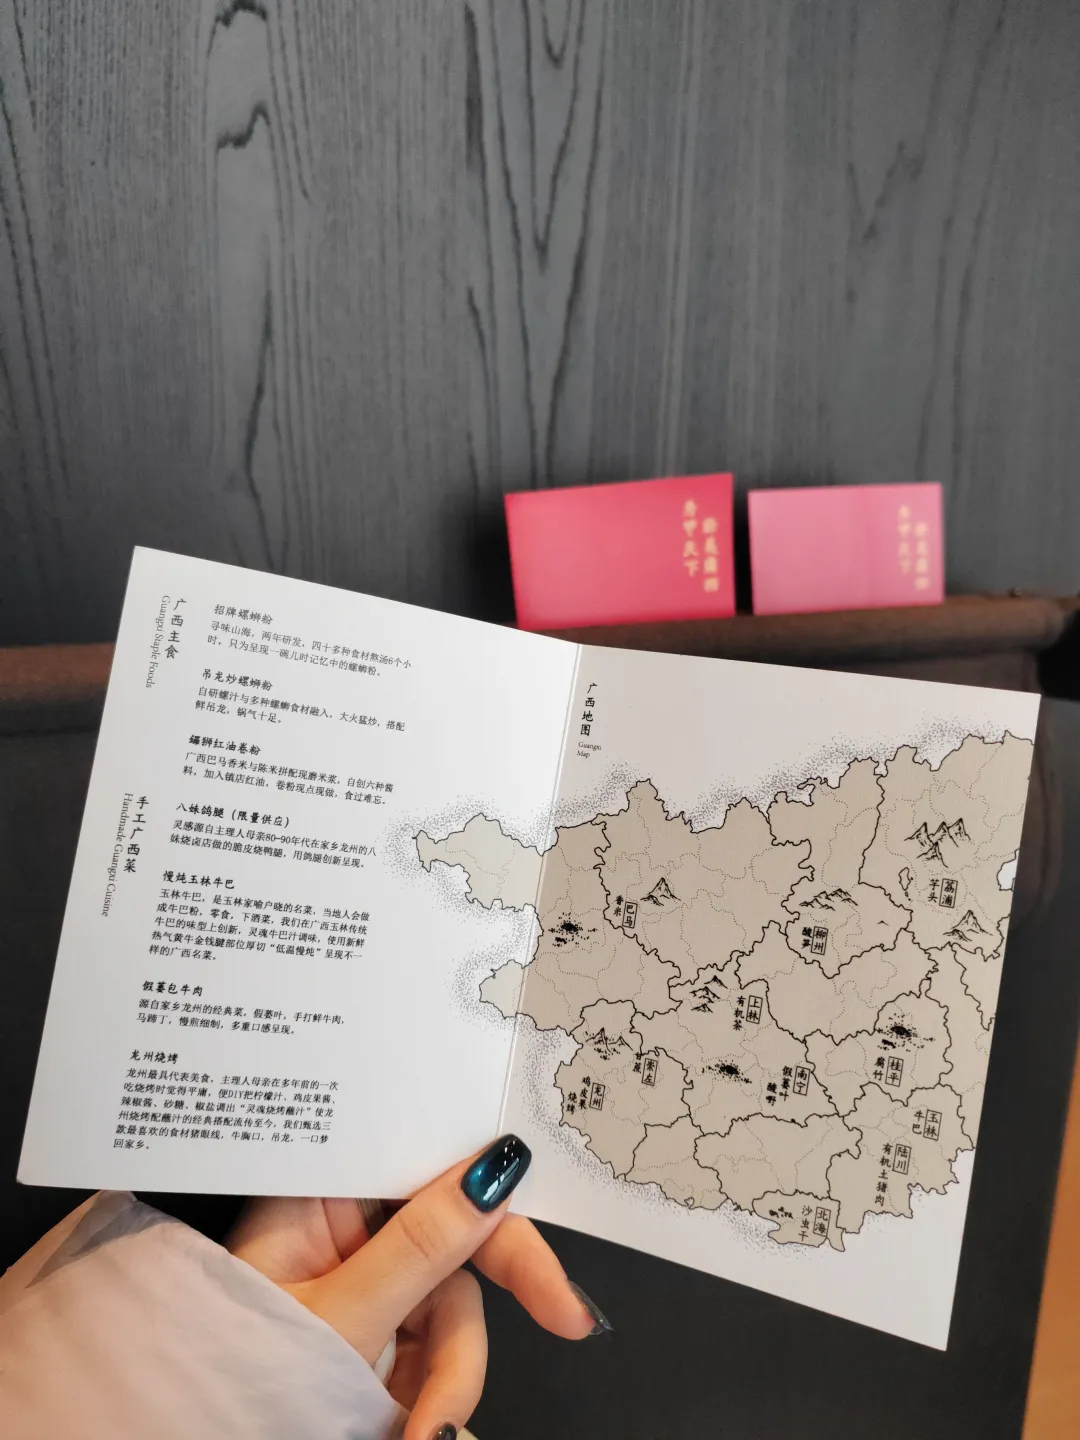 广西主食
Guangxi Staple Foods
招牌螺蛳粉
寻味山海，两年研发，四十多种食材熬汤6个小
时，只为呈现一碗儿时记忆中的螺蛳粉。
吊龙炒螺蛳粉
自研螺汁与多种螺蛳食材融入，大火猛炒，搭配
鲜吊龙，锅气十足。
红油卷粉
广西巴马香米与陈米拼配现磨米浆，自创六种酱
料，加入镇店红油，卷粉现点现做，食过难忘。
手工广西菜
Handmade Guangxi Cuisine
八妹鸽腿（限量供应）
灵感源自主理人母亲80-90年代在家乡龙州的八
妹烧卤店做的脆皮烧鸭腿，用鸽腿创新呈现。
慢炖玉林牛巴
玉林牛巴，是玉林家喻户晓的名菜，当地人会做
成牛巴粉，零食，下酒菜，我们在广西玉林传统
牛巴的味型上创新，灵魂牛巴汁调味，使用新鲜
热气黄牛金钱腱部位厚切“低温慢炖”呈现不一
样的广西名菜。
假蒌包牛肉
源自家乡龙州的经典菜，假蒌叶，手打鲜牛肉，
马蹄丁，慢煎细制，多重口感呈现。
龙州烧烤
龙州最具代表美食，主理人母亲在多年前的一次
吃烧烤时觉得平庸，便DIY把柠檬汁、鸡皮果酱、
辣椒酱、砂糖、椒盐调出“灵魂烧烤蘸汁”使龙
州烧烤配蘸汁的经典搭配流传至今，我们甄选三
款最喜欢的食材猪眼线，牛胸口，吊龙，一口梦
回家乡。
广西地图
Guangxi
Map
荔浦
芋头
巴马
香米
柳州
酸笋
上林
有机茶
桂平
腐竹
崇左
甘蔗
南宁
假蒌叶
酸嘢
龙州
鸡皮果
烧烤
玉林
牛巴
陆川
有机土猪肉
北海
沙虫干
秀甲天下
秀甲天下